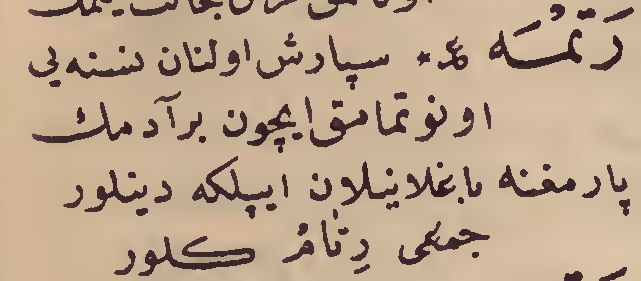 رَتْمُسَه ع * سپارش اولنان نسنه يى
اونوتمامق ايچون بر آدمك
پارمغنه باغلاينلان ايپلكه دينلور
جمعى رِتَامْ كلور